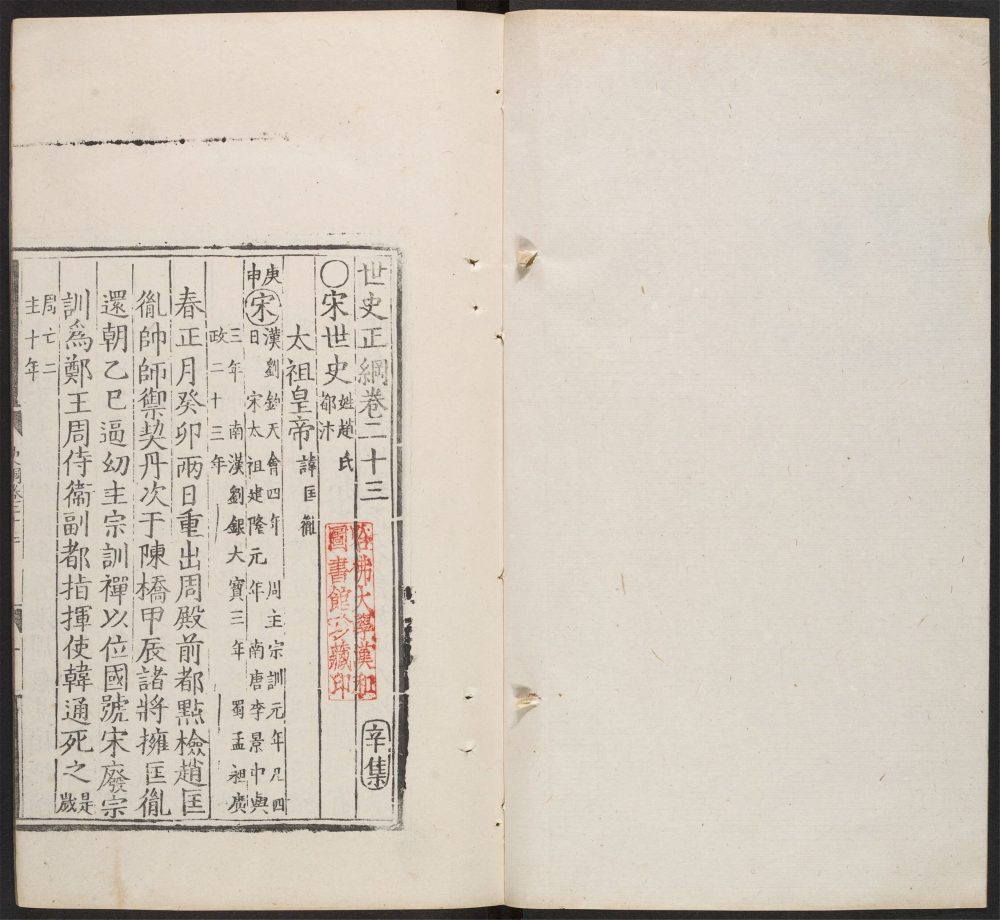 世史正綱卷二十三
辛集
〇宋世史
姓趙氏
都汴
太祖皇帝
諱匡胤
庚申
宋
漢劉鈞天會四年 周主宗訓元年凡四
日 宋太祖建隆元年 南唐李景中興
三年 南漢劉鋹大寶三年 蜀孟昶廣
政二十三年
春正月癸卯兩日重出周殿前都點檢趙匡
胤帥師禦契丹次于陳橋甲辰諸將擁匡胤
還朝乙巳逼幼主宗訓禪以位國號宋廢宗
訓為鄭王周侍衛副都指揮使韓通死之
是歲
周亡二
主十年
哈佛大學漢和
圖書館珍藏印